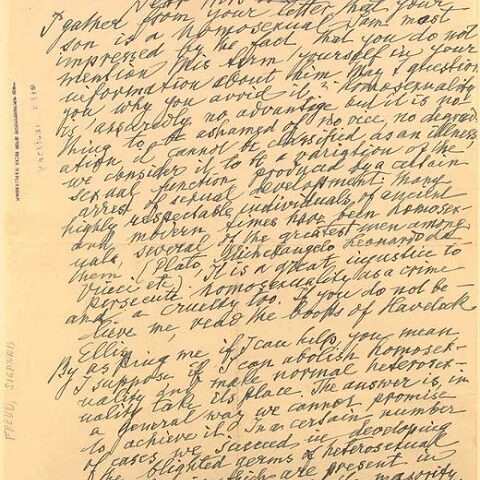 Dear Mrs
I gather from your letter that your
son is a homosexual. I am most
impressed by the fact, that you do not
mention this term yourself in your
information about him. May I question
you why you avoid it? Homosexuality
is assuredly no advantage but it is no
thing to be ashamed of, no vice, no degrad
ation, it cannot be classified as an illness;
we consider it to be a variation of the
sexual function produced by a certain
arrest of sexual development. Many
highly respectable individuals of ancient
and modern times have been homosex-
uals, several of the greatest men among
them (Plato, Michelangelo, Leonardo da
Vinci etc). It is a great injustice to
persecute homosexuality as a crime
and a cruelty too. If you do not be-
lieve me, read the books of Havelock
Ellis.
By asking me if I can help, you mean
I suppose if I can abolish homosex-
uality and make normal heterosex-
uality take its place. The answer is, in
a general way we cannot promise
to achieve it. In a certain number
of cases we succeed in developing
the blighted germs of heterosexual
which are present in
the majority
FREUD, SIGMUND